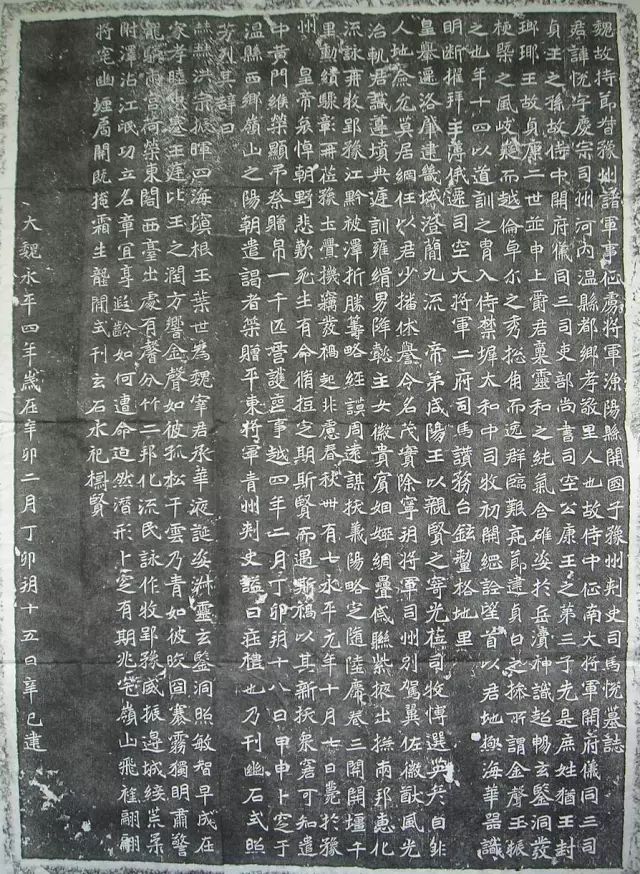 魏故持節督豫州諸軍事征虜將軍漁陽縣開國子豫州刺史司馬悅墓誌
君諱悅字慶宗司州河內溫縣都鄉孝敬里人也故侍中征南大將軍開府儀同三司
貞王之孫故侍中開府儀同三司吏部尚書司空公康王之第三子先是庶姓猶王封
瑯琊王故貞康二世並申上爵君稟靈和之純氣含確姿於岳瀆神識超暢玄鑒洞發
梗槩之風岐嶷而越倫卓尒之秀捴角而逸群臨艱亮節建貞白之操所謂金聲玉振
之也年十四以道訓之胄入侍禁墀太和中司牧初開綱詮望首以君地極海華器識
明斷擢拜主簿俄遷司空大將軍二府司馬讚務台鉉釐格地里
皇轝遷洛肇建畿域澄簡九流 帝弟咸陽王以親賢之寄光莅司牧博選英彥自非
人地僉允莫居綱任以君少播休譽令名茂實除寧朔將軍司州別駕翼佐徽猷風光
治軌君識遵墳典庭訓雍緝男降懿主女徽貴賓姻婭綢疊戚聯紫掖出撫兩邦惠化
流詠再牧郢豫江黔被澤折勝籌略經謨周遠謀扶義陽略定隨陸席卷三關開壃千
里勳績驟彰再莅豫土舋機竊發禍起非慮春秋卌有七永平元年十月七日薨於豫
州 皇帝哀悼朝野悲歎死生有命脩短定期斯賢而遇斯禍以其新拔眾寮可知遣
中黃門緱榮顯弔祭贈帛一千匹營護喪事越四年二月丁卯朔十八日甲申卜窆于
溫縣西鄉嶺山之陽朝遣謁者榮贈平東將軍青州刺史謚曰莊禮也乃刊幽石式照
芳烈其辭曰
赫赫洪宗振暉四海瓊根玉葉世為魏宰君承華液誕姿淋靈玄鑒洞照敏智早成在
家孝睦忠蹇王庭比玉之潤方響金聲如彼孤松干雲乃青如彼皎囧褰霧獨明肅警
龍躬兩宮荷榮東閣西臺出處有馨分竹二邦化流民詠作牧郢豫威振邊城綏荒柔
附澤沾江岷功立名章宜享遐齡如何遭命迫然潛形卜窆有期兆宅嶺山飛旌翩翩
將宅幽堙扃關既掩霜生壟間式刊玄石永祀標賢
大魏永平四年歲在辛卯二月丁卯朔十五日辛巳建